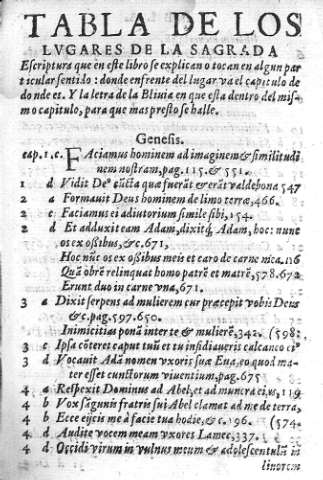 TABLA DE LOS
LVGARES DE LA SAGRADA
Escriptura que en este libro se explican o tocan en algun par
ticular sentido: donde enfrente del lugar va el capitulo de
donde es. Y la letra de la Bliuia en que esta dentro del mis
mo capitulo, para que mas presto se halle.
Genesis.
cap. 1. c. FAciamus hominem ad imaginem & similitudi
nem nostram, pag. 115. & 551.
1 d Vidit De° cūcta qua fuerāt & erāt valde bona 547
2 a Formauit Deus hominem de limo terræ, 466.
2 c Faciamus ei adiutorium simile sibi, 154.
2 d Et adduxit eam Adam, dixitq; Adam, hoc: nunc
os ex ossibus, &c. 671,
Hoc nūc os ex ossibus meis et caro de carne mea. 116
Quā obrē relinquat homo patrē et matrē, 578. 672
Erunt duo in carne vna, 671.
3 a Dixit serpens ad mulierem cur præcepit vobis Deus
& c. pag. 597. 650.
Inimicitias ponā inter te & mulierē, 342. (598:
3 c Ipsa cōteret caput tuū et tu insidiaueris calcaneo ei°
3 d Vocauit Adā nomen vxoris suæ Eua, eo quod ma-
ter esset cunctorum viuentium, pag. 675
4 a Respexit Dominus ad Abel, et ad munera ei, 119
4 b Vox sāgunis fratris tui Abel clamat ad me de terra,
4 b Ecce eijcis me à facie tua hodie, & c. 196. (574.
4 d Audite vocem meam vxores Lamec, 337.
4 d Occidi virum in vulnus meum & adolescentulū in
liuorem